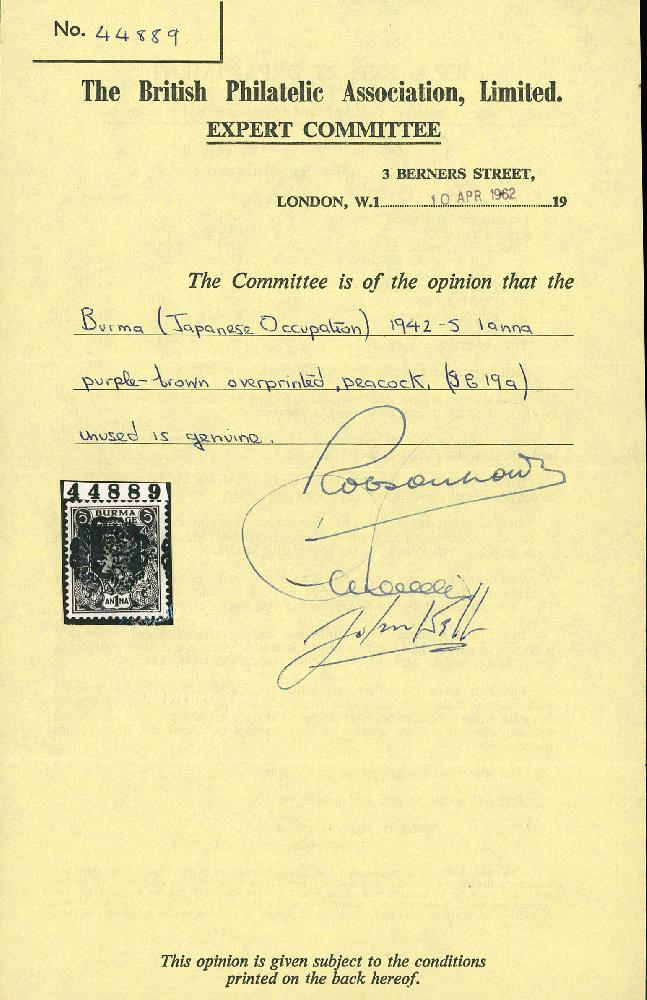 No. 44889
The British Philatelic Association, Limited.
EXPERT COMMITTEE
3 BERNERS STREET,
LONDON, W.1. 10 APR 1962 19
The Committee is of the opinion that the
Burma (Japanese Occupation) 1942-5 1 anna
purple-brown overprinted, peacock, (SG 19a)
unused is genuine.
44889
BURMA
ANNA
John Bell
This opinion is given subject to the conditions
printed on the back hereof.